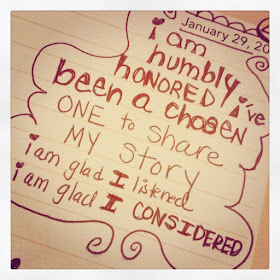 January 29, 20
i am
humbly
HONORED i've
been a chosen
ONE to share
MY Story
i am glad I listened
i am glad I CONSIDERED